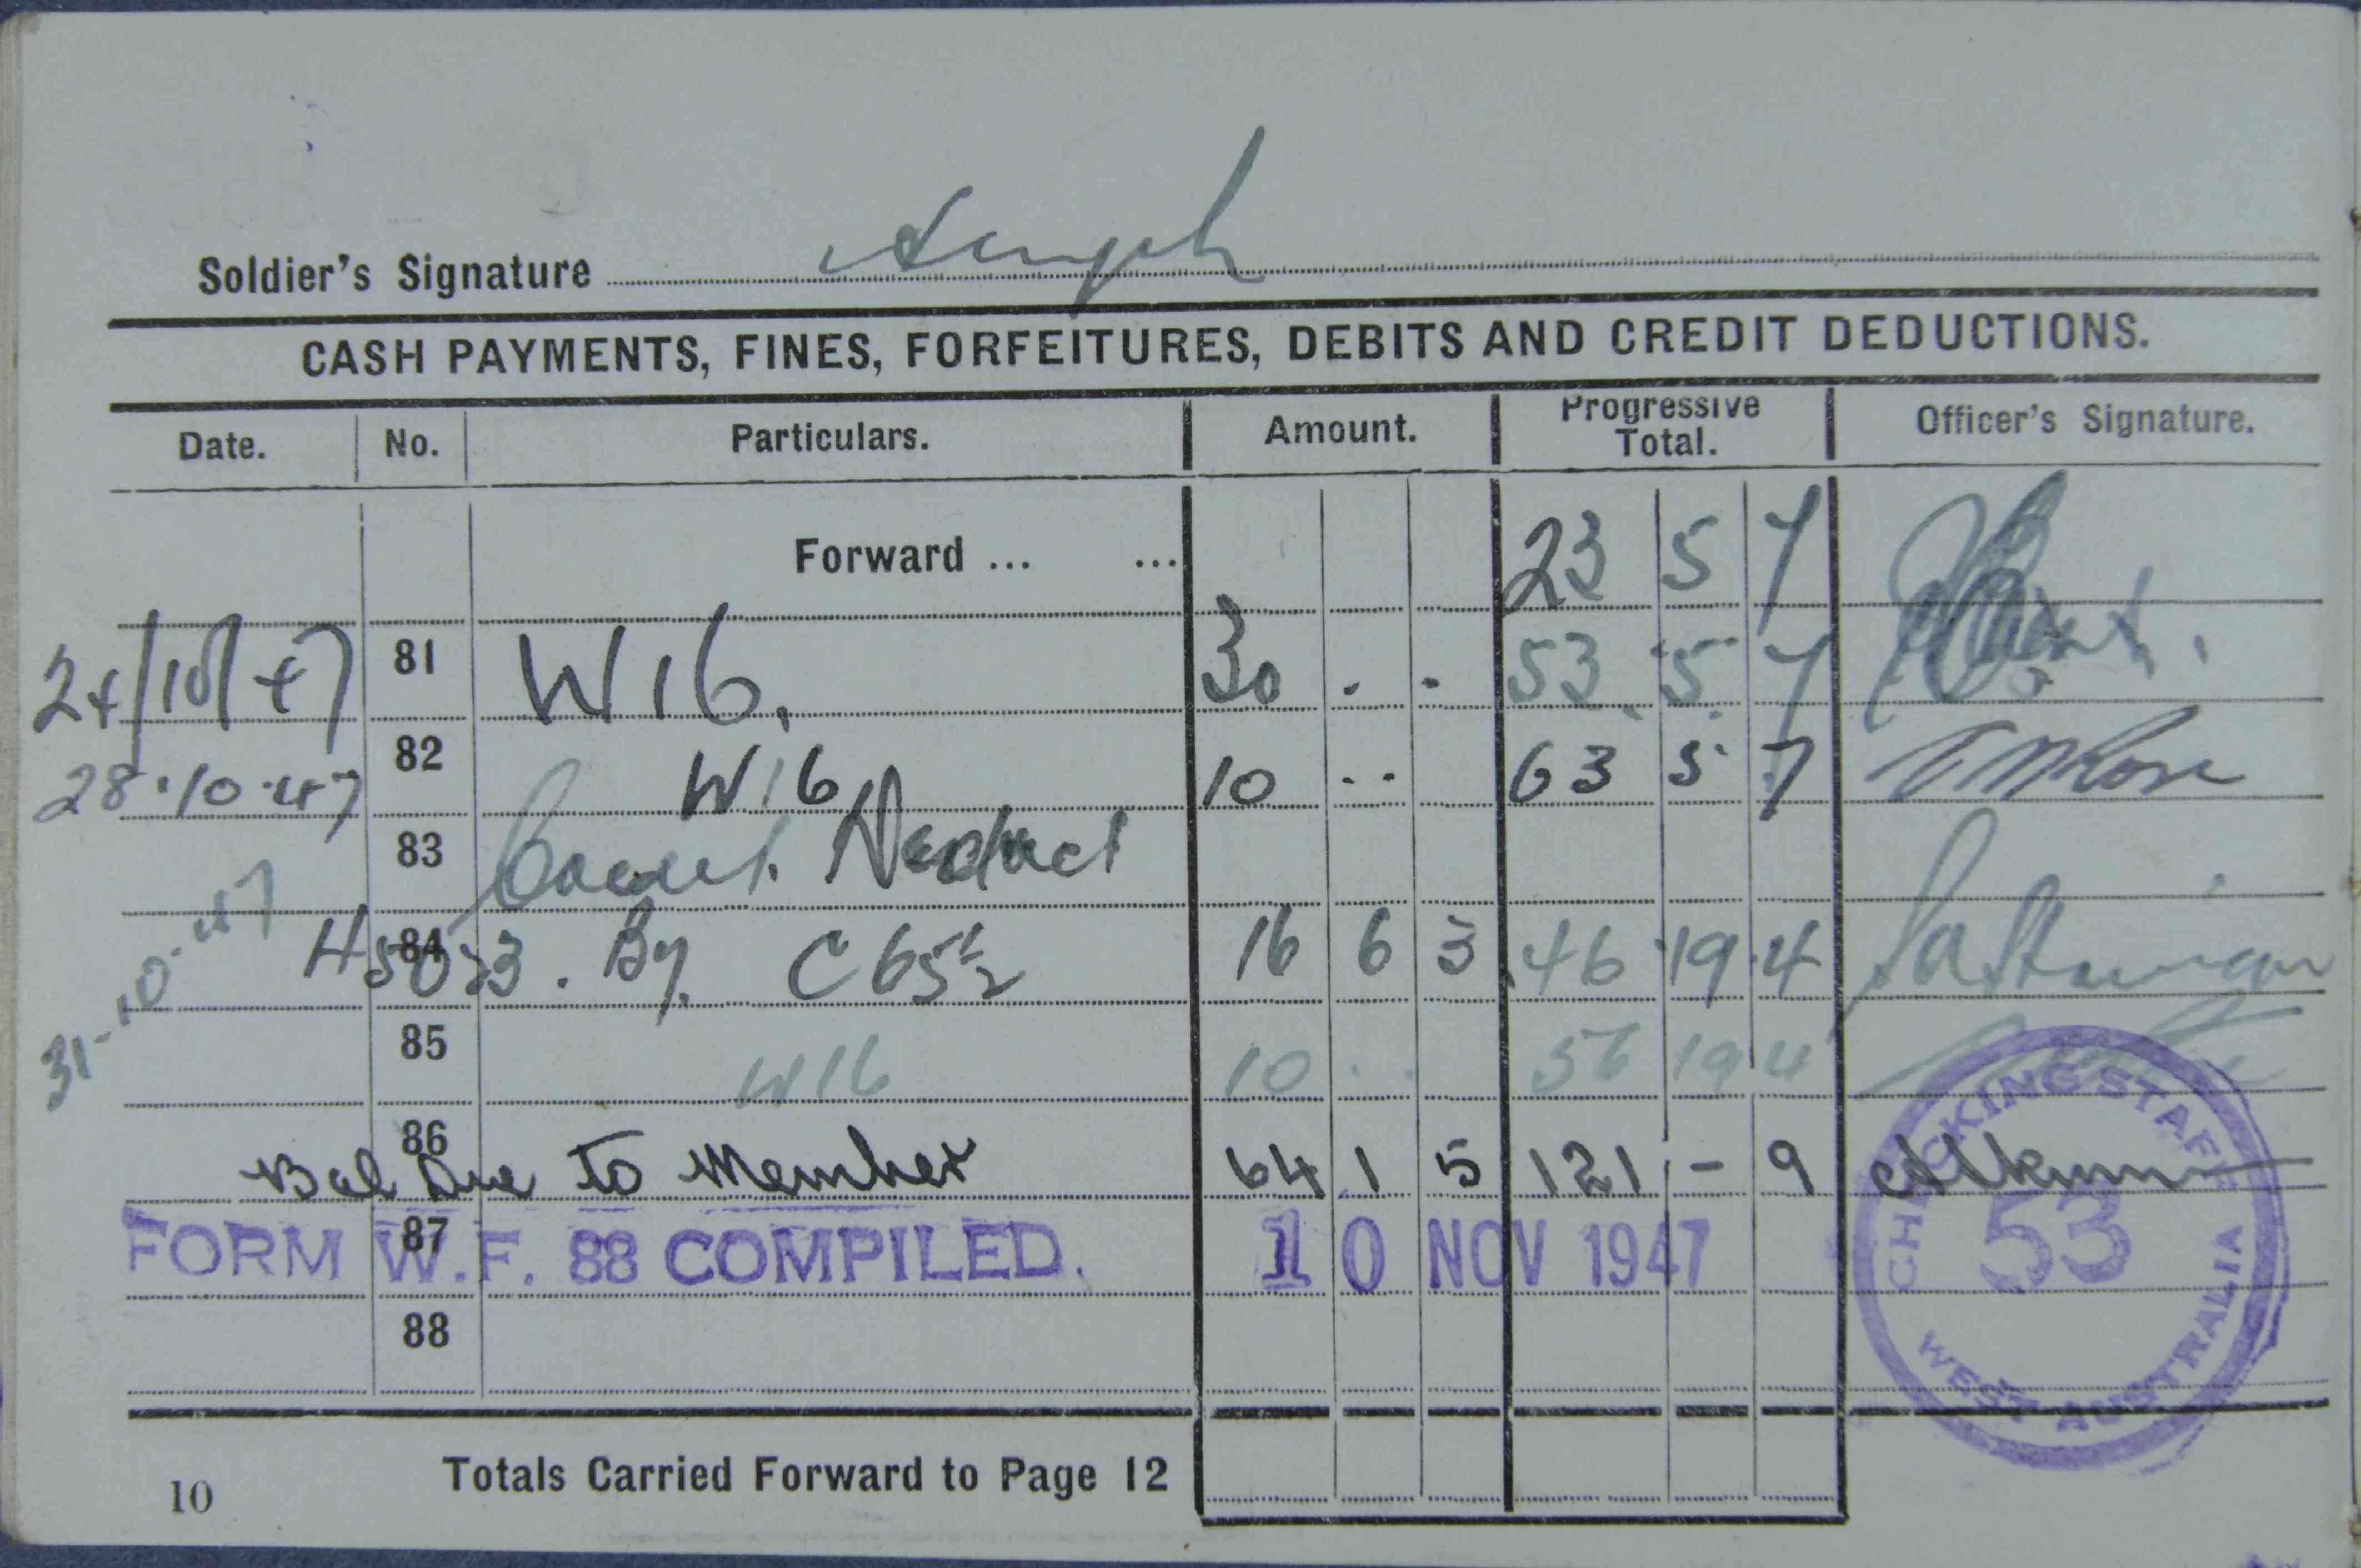 Soldier's Signature
CASH PAYMENTS, FINES, FORFEITURES, DEBITS AND CREDIT DEDUCTIONS.
Date. No. Particulars. Amount. Progressive Total. Officer's Signature.
Forward ... ... 23 5 7
24/10/47 81 W16. 30 . . 53 5 7
28.10.47 82 W16 10 . . 63 5 7
83
84 By C 65 16 6 3 46 19 4
31-10-47 85 W16 10 . . 56 19 4
86 Bal Due To Member 64 1 5 121 - 9
87 FORM W.F. 88 COMPILED. 10 NOV 1947
88
CHECKING STAFF
53
WEST AUSTRALIA
Totals Carried Forward to Page 12
10